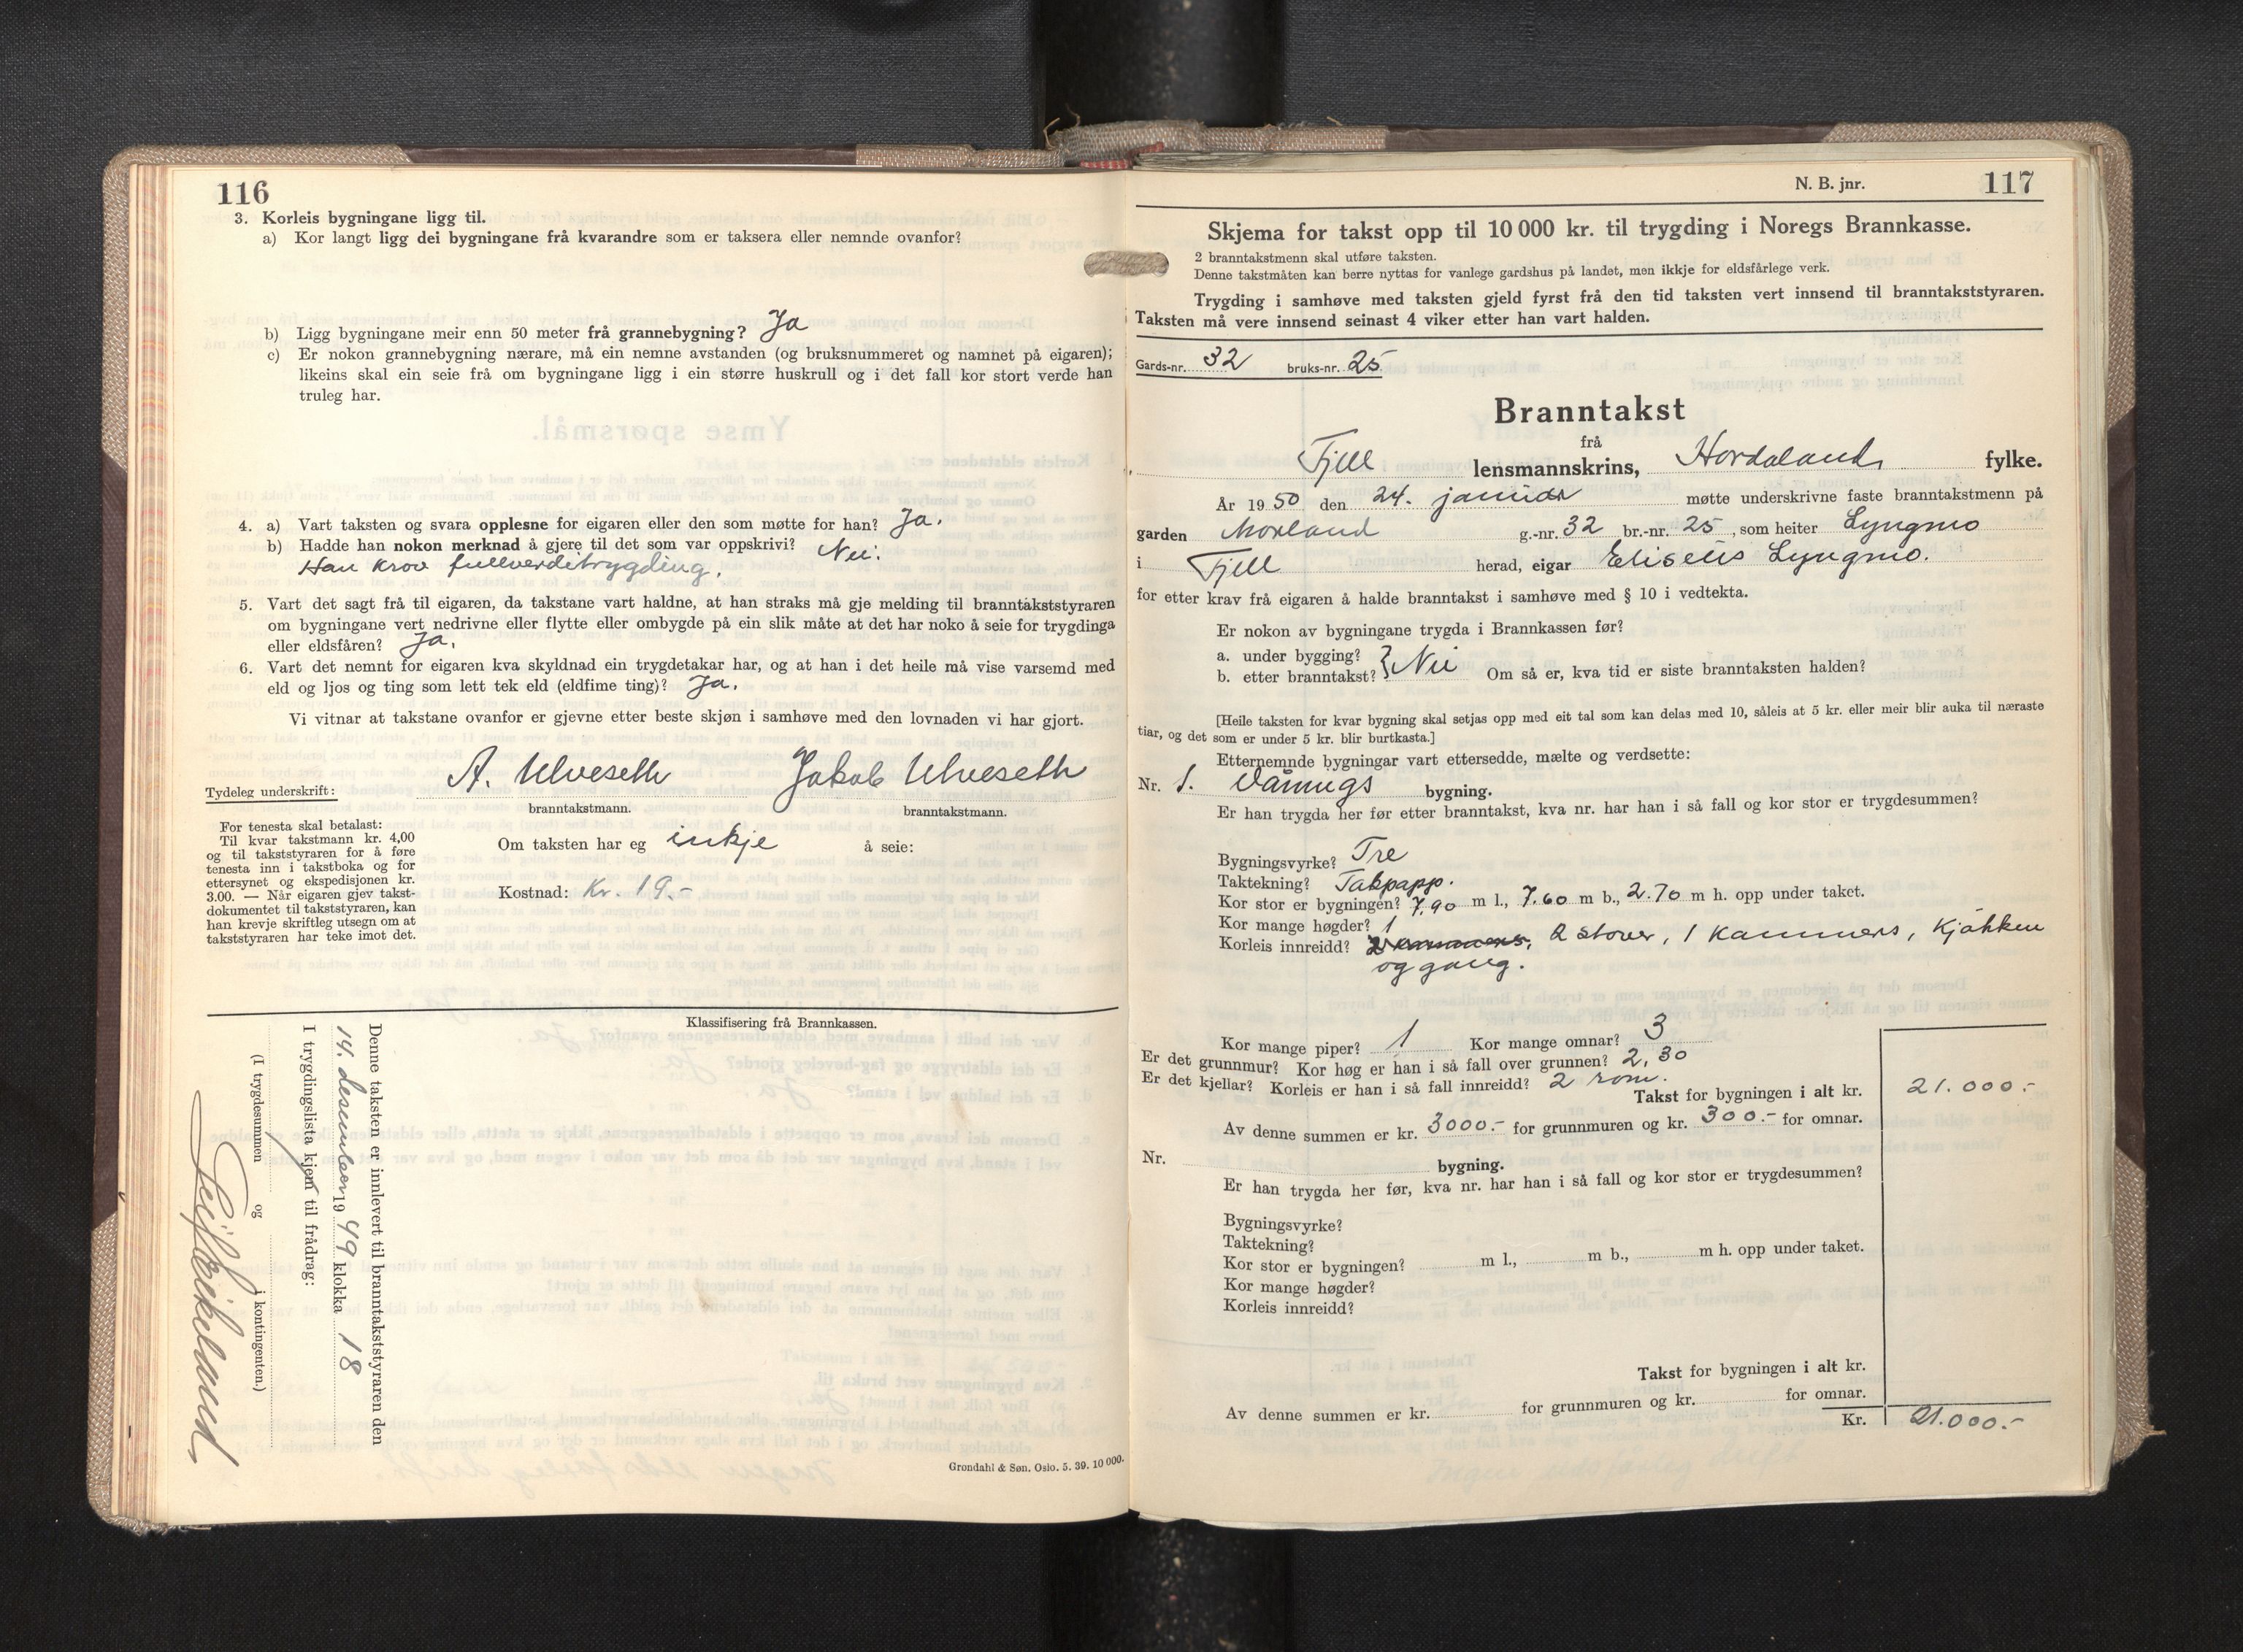 116
3. Korleis bygningane ligg til.
a) Kor langt ligg dei bygningane frå kvarandre som er taksera eller nemnde ovanfor?
b) Ligg bygningane meir enn 50 meter frå grannebygning? Ja
c) Er nokon grannebygning nærare, må ein nemne avstanden (og bruksnummeret og namnet på eigaren);
likeins skal ein seie frå om bygningane ligg i ein større huskrull og i det fall kor stort verde han
truleg har.
4. a) Vart taksten og svara opplesne for eigaren eller den som møtte for han? Ja.
b) Hadde han nokon merknad å gjere til det som var oppskrivi? Nei.
Han krov fullverditrygding.
5. Vart det sagt frå til eigaren, da takstane vart haldne, at han straks må gje melding til branntakststyraren
om bygningane vert nedrivne eller flytte eller ombygde på ein slik måte at det har noko å seie for trygdinga
eller eldsfåren? Ja.
6. Vart det nemnt for eigaren kva skyldnad ein trygdetakar har, og at han i det heile må vise varsemd med
eld og ljos og ting som lett tek eld (eldfime ting)? Ja.
Vi vitnar at takstane ovanfor er gjevne etter beste skjøn i samhøve med den lovnaden vi har gjort.
Tydeleg underskrift: A. Ulveseth Jakob Ulveseth
branntakstmann. branntakstmann.
For tenesta skal betalast:
Til kvar takstmann kr. 4,00
og til takststyraren for å føre
tenesta inn i takstboka og for
ettersynet og ekspedisjonen kr.
3.00. — Når eigaren gjev takst-
dokumentet til takststyraren, kan
han krevje skriftleg utsegn om at
takststyraren har teke imot det.
Om taksten har eg inkje å seie:
Kostnad: Kr. 19.-
Klassifisering frå Brannkassen.
Denne taksten er innlevert til branntakststyraren den
14. desember 1949 klokka 18
I trygdingslista kjem til frådrag:
(I trygdesummen og i kontingenten.)
Grøndahl & Søn, Oslo. 5. 39. 10 000.
N. B. jnr. 117
Skjema for takst opp til 10 000 kr. til trygding i Noregs Brannkasse.
2 branntakstmenn skal utføre taksten.
Denne takstmåten kan berre nyttas for vanlege gardshus på landet, men ikkje for eldsfårlege verk.
Trygding i samhøve med taksten gjeld fyrst frå den tid taksten vert innsend til branntakststyraren.
Taksten må vere innsend seinast 4 viker etter han vart halden.
Gards-nr. 32 bruks-nr. 25
Branntakst
frå
Fjell lensmannskrins, Hordaland fylke.
År 1950 den 24. januar møtte underskrivne faste branntakstmenn på
garden Morland g.-nr. 32 br.-nr. 25, som heiter Lyngmo
i Fjell herad, eigar Eliseus Lyngmo.
for etter krav frå eigaren å halde branntakst i samhøve med § 10 i vedtekta.
Er nokon av bygningane trygda i Brannkassen før?
a. under bygging?
b. etter branntakst? } Nei Om så er, kva tid er siste branntaksten halden?
[Heile taksten for kvar bygning skal setjas opp med eit tal som kan delas med 10, såleis at 5 kr. eller meir blir auka til næraste
tiar, og det som er under 5 kr. blir burtkasta.]
Etternemnde bygningar vart ettersedde, mælte og verdsette:
Nr. 1. Vånings bygning.
Er han trygda her før etter branntakst, kva nr. har han i så fall og kor stor er trygdesummen?
Bygningsvyrke? Tre
Taktekning? Takpapp.
Kor stor er bygningen? 7.90 m l., 7.60 m b., 2.70 m h. opp under taket.
Kor mange høgder? 1
Korleis innreidd? 2 kammers, 2 stover, 1 kammers, kjøkken
og gang.
Kor mange piper? 1 Kor mange omnar? 3
Er det grunnmur? Kor høg er han i så fall over grunnen? 2,30
Er det kjellar? Korleis er han i så fall innreidd? 2 rom.
Takst for bygningen i alt kr. 21.000.-
Av denne summen er kr. 3000.- for grunnmuren og kr. 300.- for omnar.
Nr. bygning.
Er han trygda her før, kva nr. har han i så fall og kor stor er trygdesummen?
Bygningsvyrke?
Taktekning?
Kor stor er bygningen? m l., m b., m h. opp under taket.
Kor mange høgder?
Korleis innreidd?
Takst for bygningen i alt kr.
Av denne summen er kr. for grunnmuren og kr. for omnar.
Kr. 21.000.-